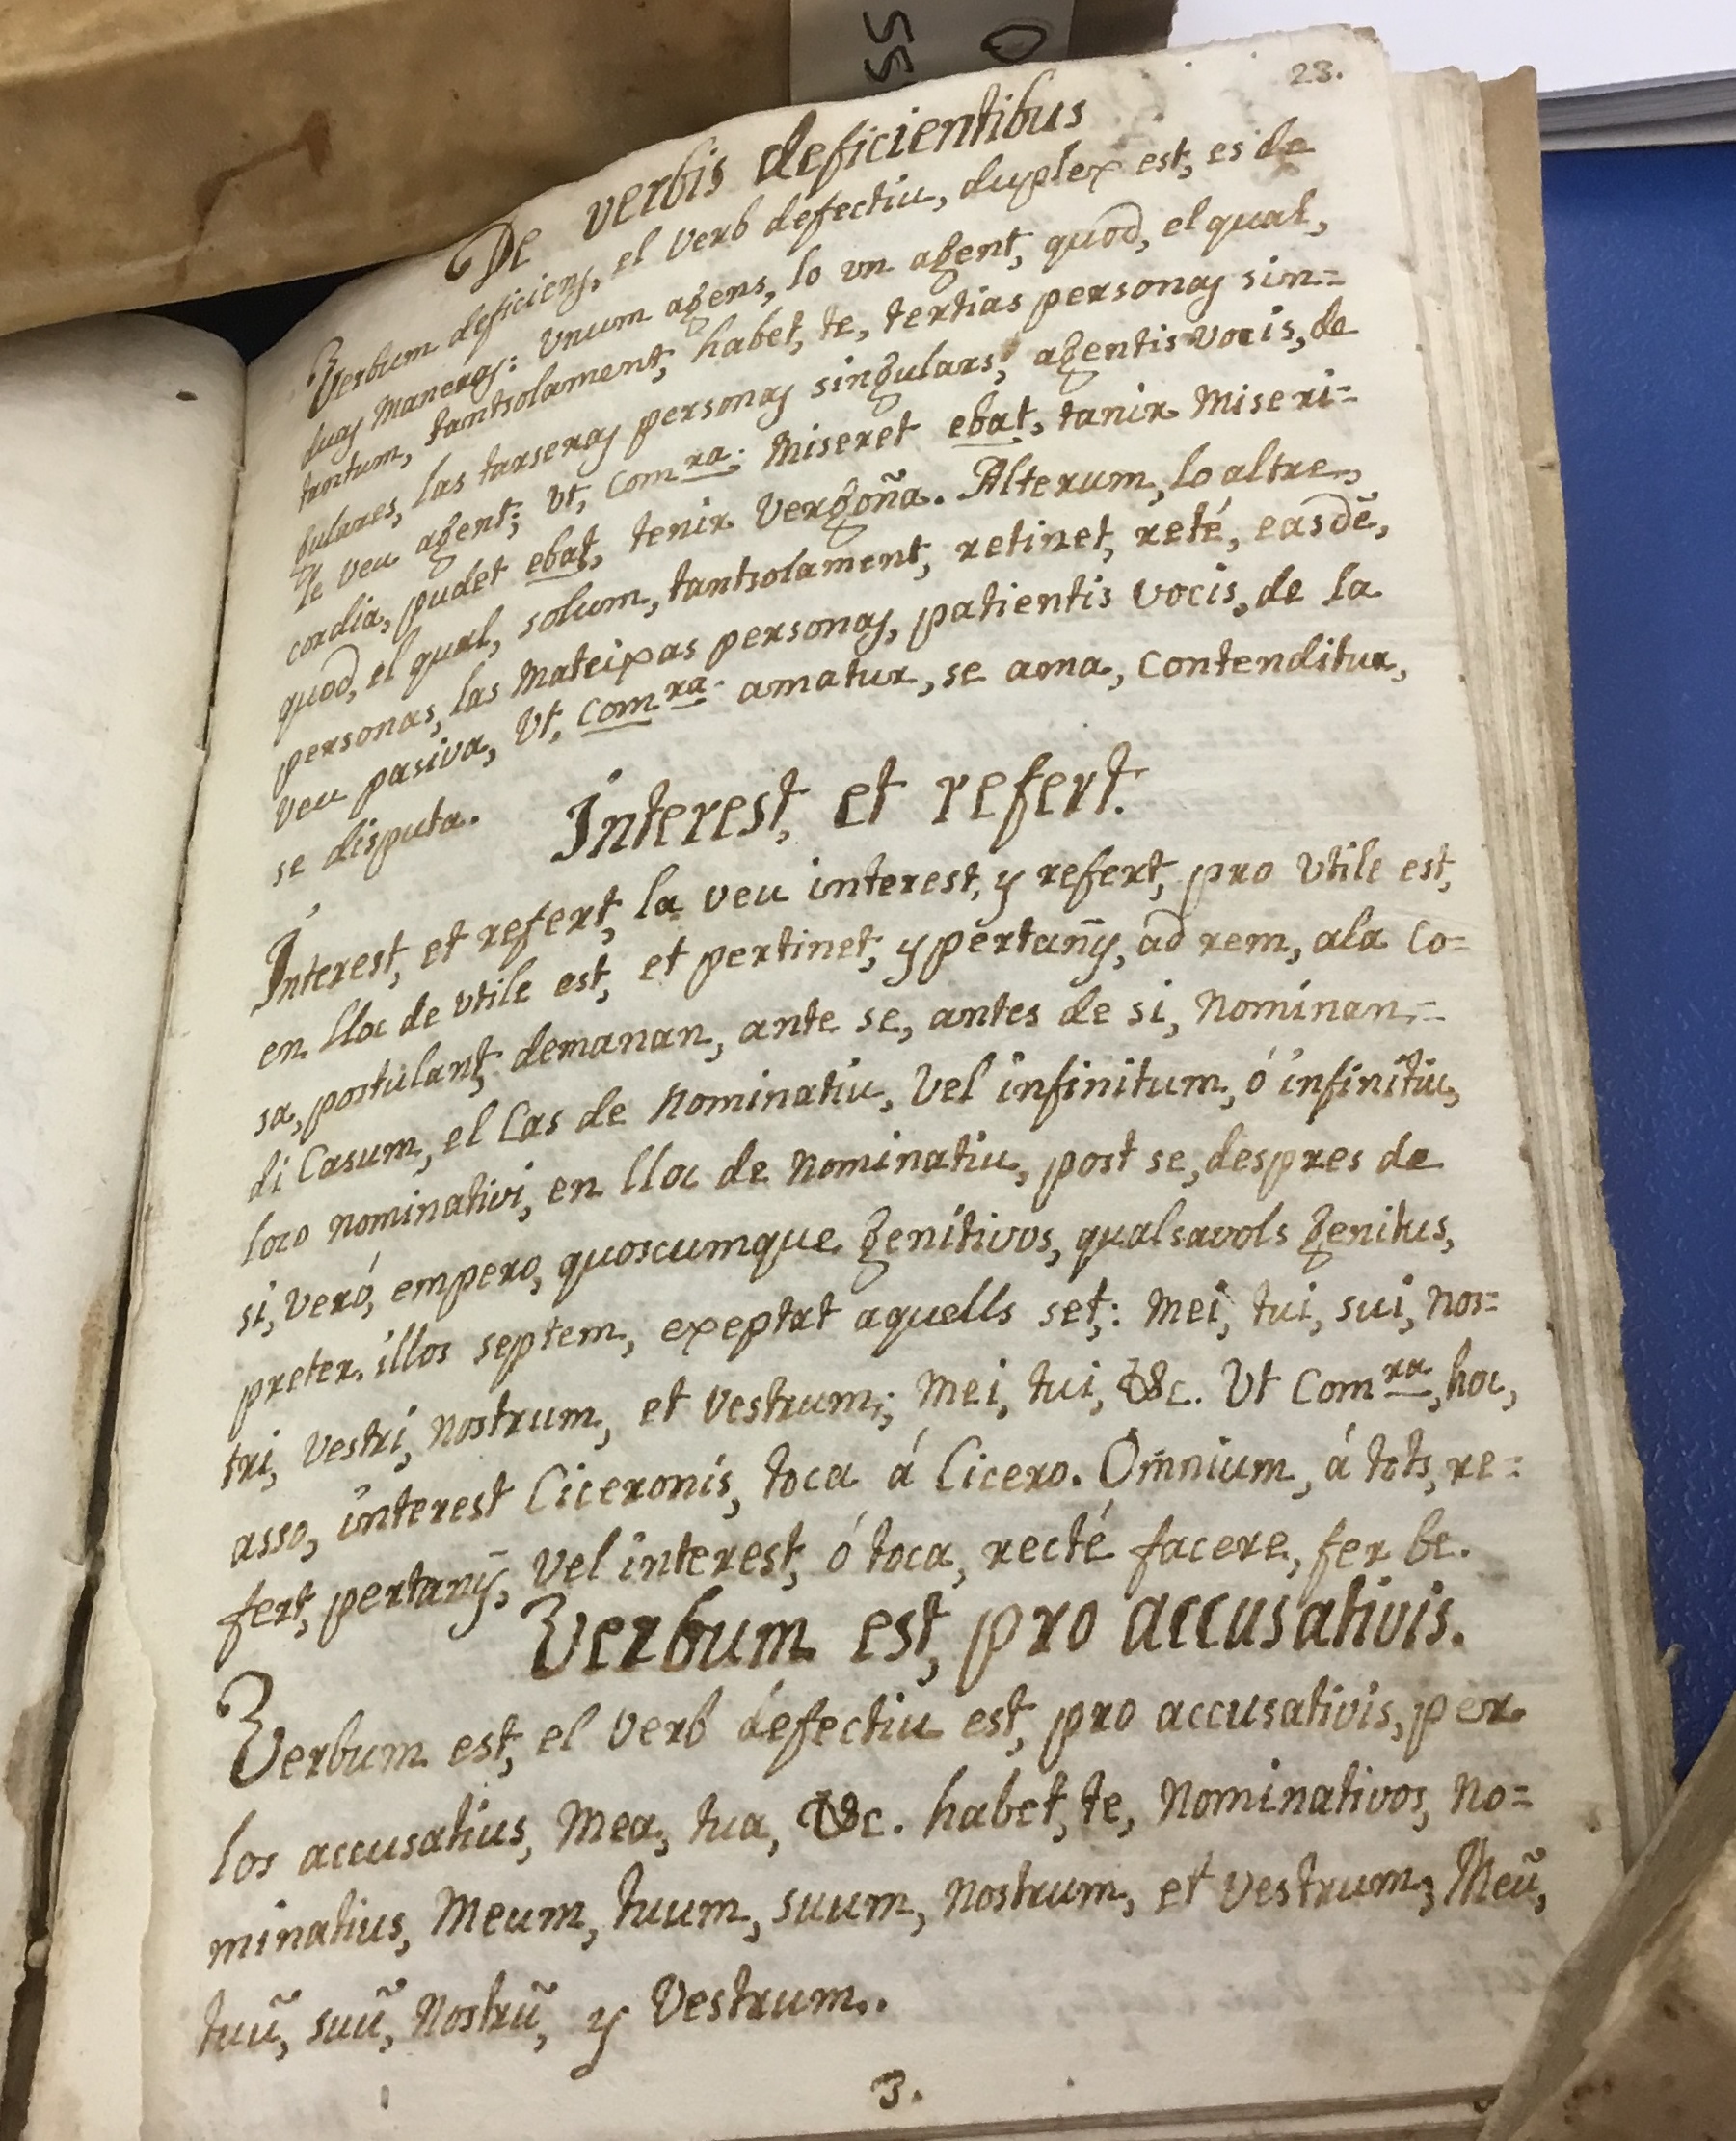 SS
0
23.
De verbis deficientibus
Verbum deficiens, el verb defectiu, duplex est, es de
duas maneras: Unum agens, lo un agent, quod, el qual,
tantum, tantsolament, habet, te, tertias personas sin=
gulares, las tarseras personas singulars, agentis vocis, de
le veu agent; Ut, Com.ra: Miseret ebat, tanir Miseri=
cordia, pudet ebat, tenir Vergoña. Alterum, lo altre,
quod, el qual, solum, tantsolament, retinet, reté, easdẽ,
personas, las Mateixas personas, patientis vocis, de la
veu pasiva, Ut, Com.ra. amatur, se ama, Contenditur,
se disputa.
Interest, et refert.
Interest, et refert, la veu interest, y refert, pro Utile est,
en lloc de utile est, et pertinet, y pertanÿ, ad rem, ala Co=
sa, postulant, demanan, ante se, antes de si, Nominan=
di Casum, el Cas de Nominatiu, Vel infinitum, ó infinitiu,
loco nominativi, en lloc de Nominatiu, post se, despres de
si, veró, empero, quoscumque genitivos, qualsavols genitius,
preter illos septem, exeptat aquells set,: Mei, tui, sui, nos=
tri, Vestri, Nostrum, et Vestrum; Mei, tui, &c. Ut Com.ra, hoc,
asso, interest Ciceronis, toca á Cicero. Omnium, á tots, re=
fert, pertanÿ, Vel interest, ó toca, recté facere, fer be.
Verbum est, pro accusativis.
Verbum est, el verb defectiu est, pro accusativis, per
los accusatius, Mea, tua, &c. habet, te, Nominativos, No=
minatius, Meum, tuum, suum, Nostrum, et Vestrum; Meũ,
tuũ, suũ, Nostrũ, y Vestrum.
3.